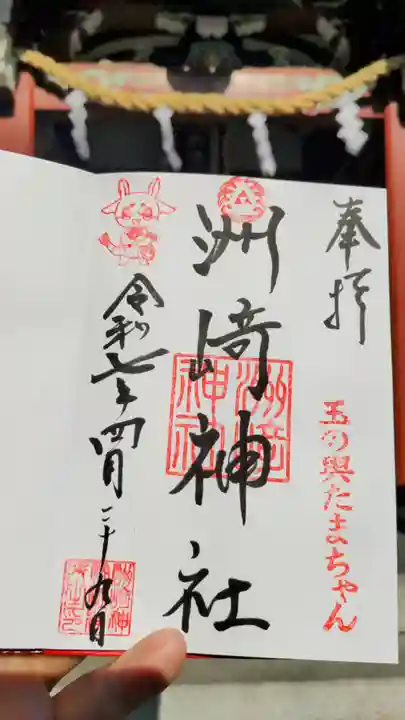 奉拝
玉の輿たまちゃん
洲崎神社
洲崎神社
令和七年四月二十九日